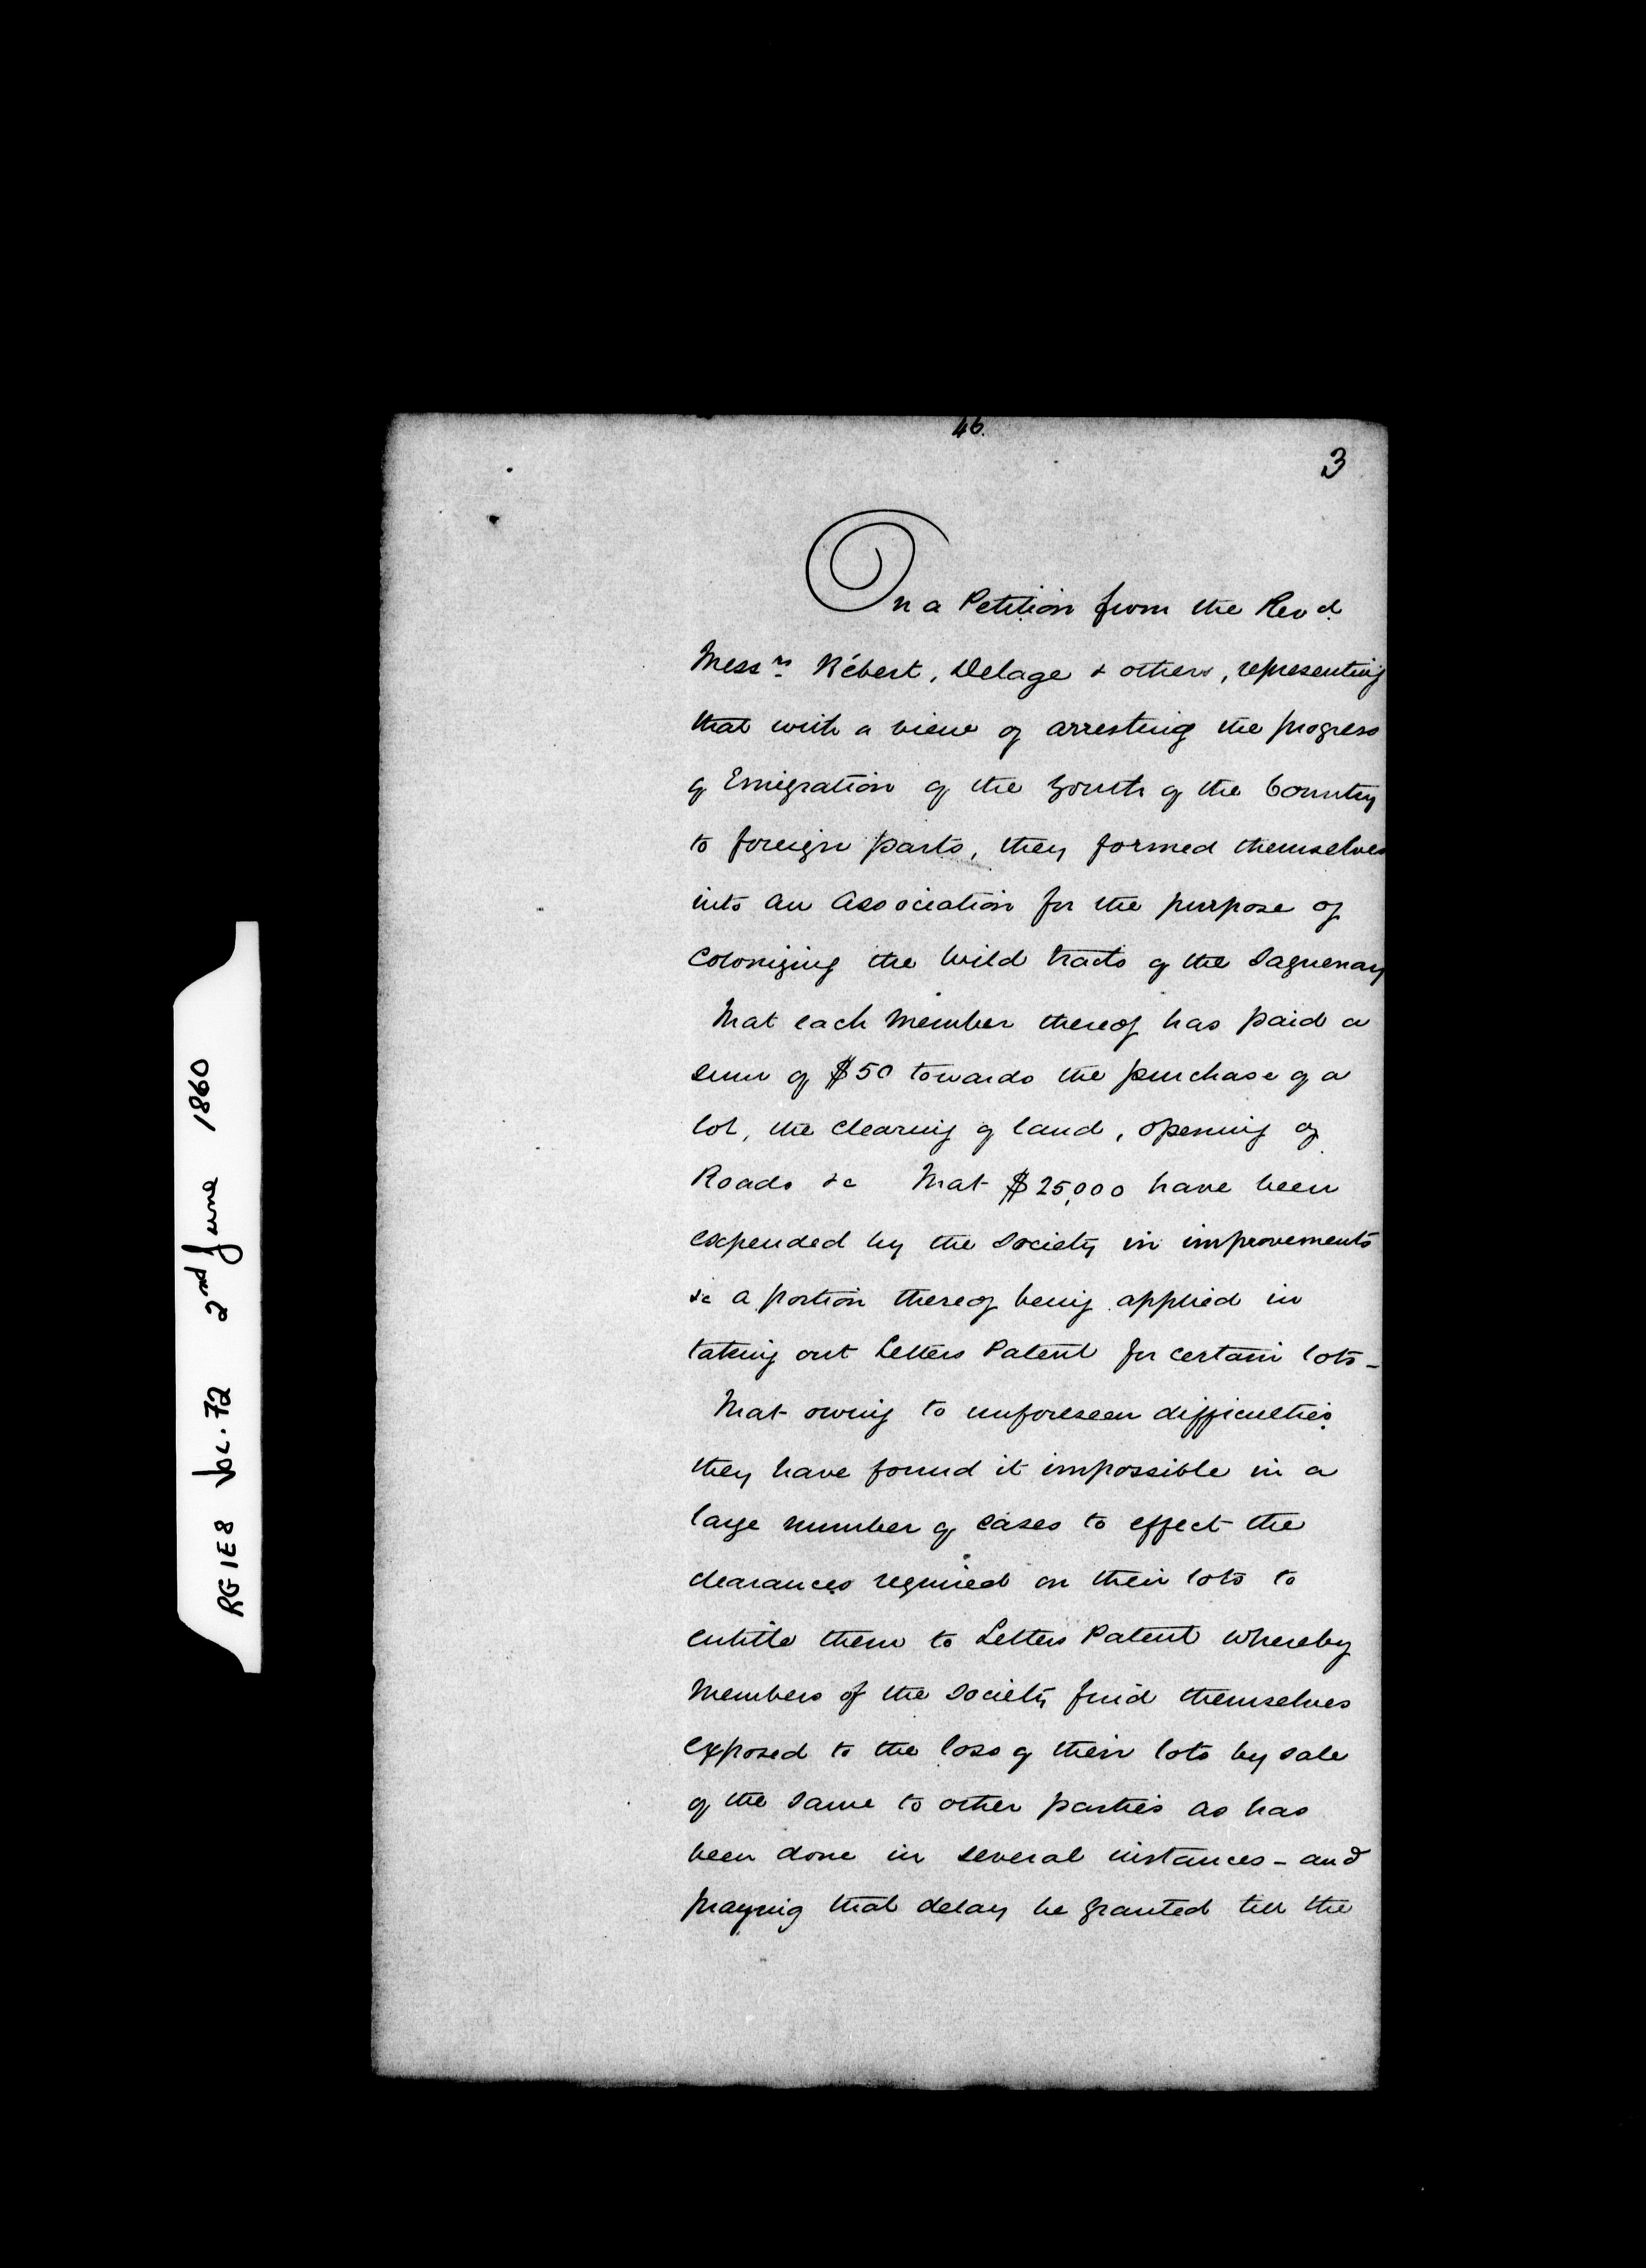 46.
3
On a Petition from the Revd.
Messrs. Hébert, Delage & others, representing
that with a view of arresting the progress
of Emigration of the youth of the Country
to foreign parts, they formed themselves
into an Association for the purpose of
colonizing the wild tracts of the Saguenay
That each Member thereof has paid a
sum of $50 towards the purchase of a
lot, the clearing of land, opening of
Roads &c That $25,000 have been
expended by the Society in improvements
&c a portion thereof being applied in
taking out Letters Patent for certain lots –
That owing to unforeseen difficulties
they have found it impossible in a
large number of cases to effect the
clearances required on their lots to
entitle them to Letters Patent whereby
Members of the Society find themselves
exposed to the loss of their lots by sale
of the same to other parties as has
been done in several instances – and
praying that delay be granted till the
RG 1 E 8 Vol. 72 2nd June 1860